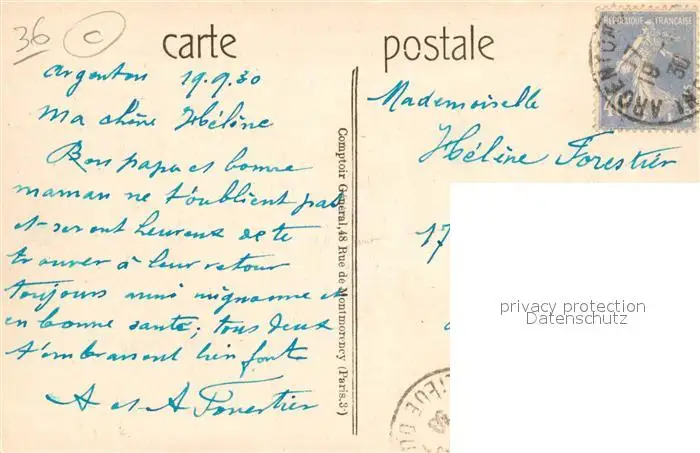 36 C
carte postale
Argenton 19.9.30
Ma chère Hélène
Bon papa et bonne
maman ne t'oublient pas
et seront heureux de te
trouver à leur retour
toujours aussi mignonne et
en bonne santé; tous deux
t'embrassent bien fort
A et A Forestier
Comptoir Général, 48 Rue de Montmorency (Paris.3e)
Mademoiselle
Hélène Forestier
17
REPUBLIQUE FRANÇAISE
ARGENTON
19
30
privacy protection
Datenschutz